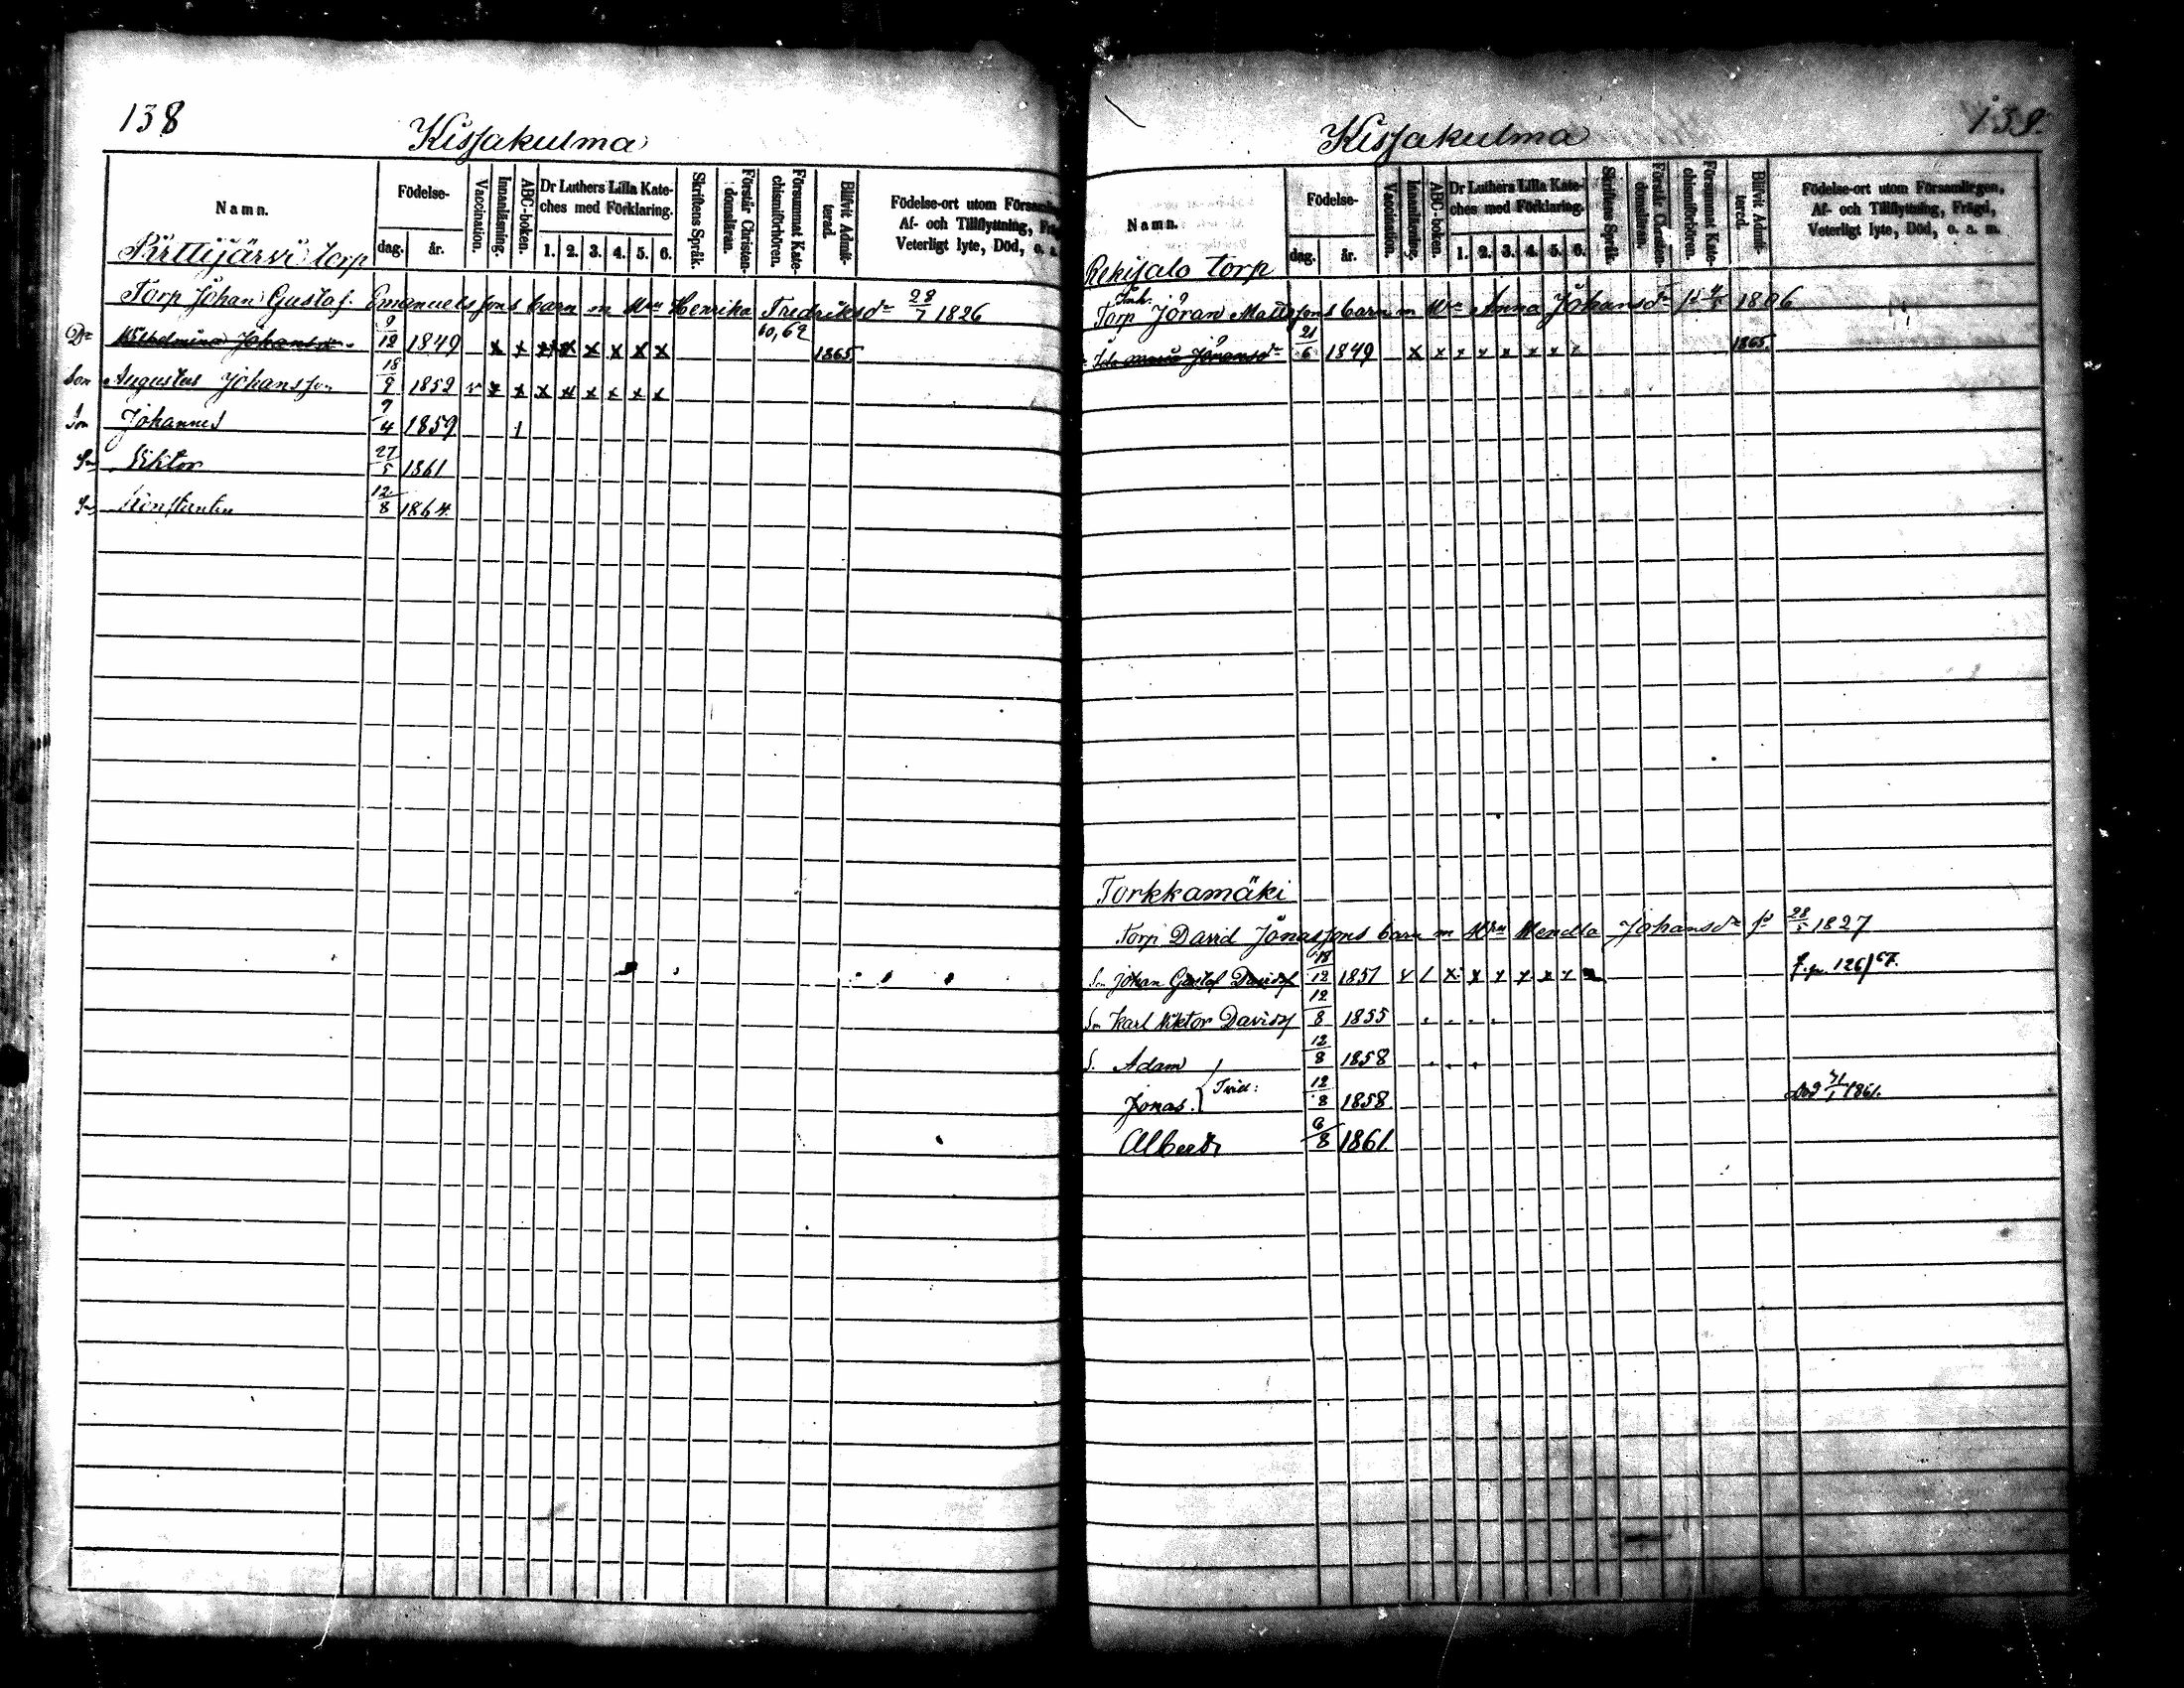 138
Kissakulma
Namn.
Födelse-
dag.
år.
Vaccination.
Innanläsning.
ABC-boken.
Dr Luthers Lilla Kate-
ches med Förklaring.
1. 2. 3. 4. 5. 6.
Skriftens Språk.
Förstår Christen-
domsläran.
Försummat Kate-
chismiförhören.
Blifvit Admit-
terad.
Födelse-ort utom Försam
Af- och Tillflyttning,
Veterligt lyte, Död, o. a.
Pirttijärvi torp
Torp Johan Gustaf Emanuelssons barn m Hu Henrika Fredriksdr 28/7 1826
Dr Wilhelmina Johansdr 9/12 1849 x x x x x x x x 60,62 1865
Son Augustus Johansson 18/9 1852 v x x x x x x x x
Son Johannes 9/4 1859 1
Son Viktor 27/5 1861
Son Konstantin 12/8 1864.
139.
Kissakulma
Namn.
Födelse-
dag.
år.
Vaccination.
Innanläsning.
ABC-boken.
Dr Luthers Lilla Kate-
ches med Förklaring.
1. 2. 3. 4. 5. 6.
Skriftens Språk.
Förstår Christen-
domsläran.
Försummat Kate-
chismiförhören.
Blifvit Admit-
terad.
Födelse-ort utom Församlingen,
Af- och Tillflyttning, Frägd,
Veterligt lyte, Död, o. a. m.
Rekisalo torp
Torp Jöran Mattssons barn m Anna Johansdr 1806
Jöransdr 21/6 1849 x x x x x x x x 1865.
Torkkamäki
Torp David Jonassons barn m Hu Johansdr fd 28/5 1827
Son Johan Gustaf Davids 18/12 1851 126/67.
Son Karl Viktor Davids 12/8 1855
S. Adam 12/8 1858
Jonas. 12/8 1858 Död 1861.
Albert 6/8 1861.